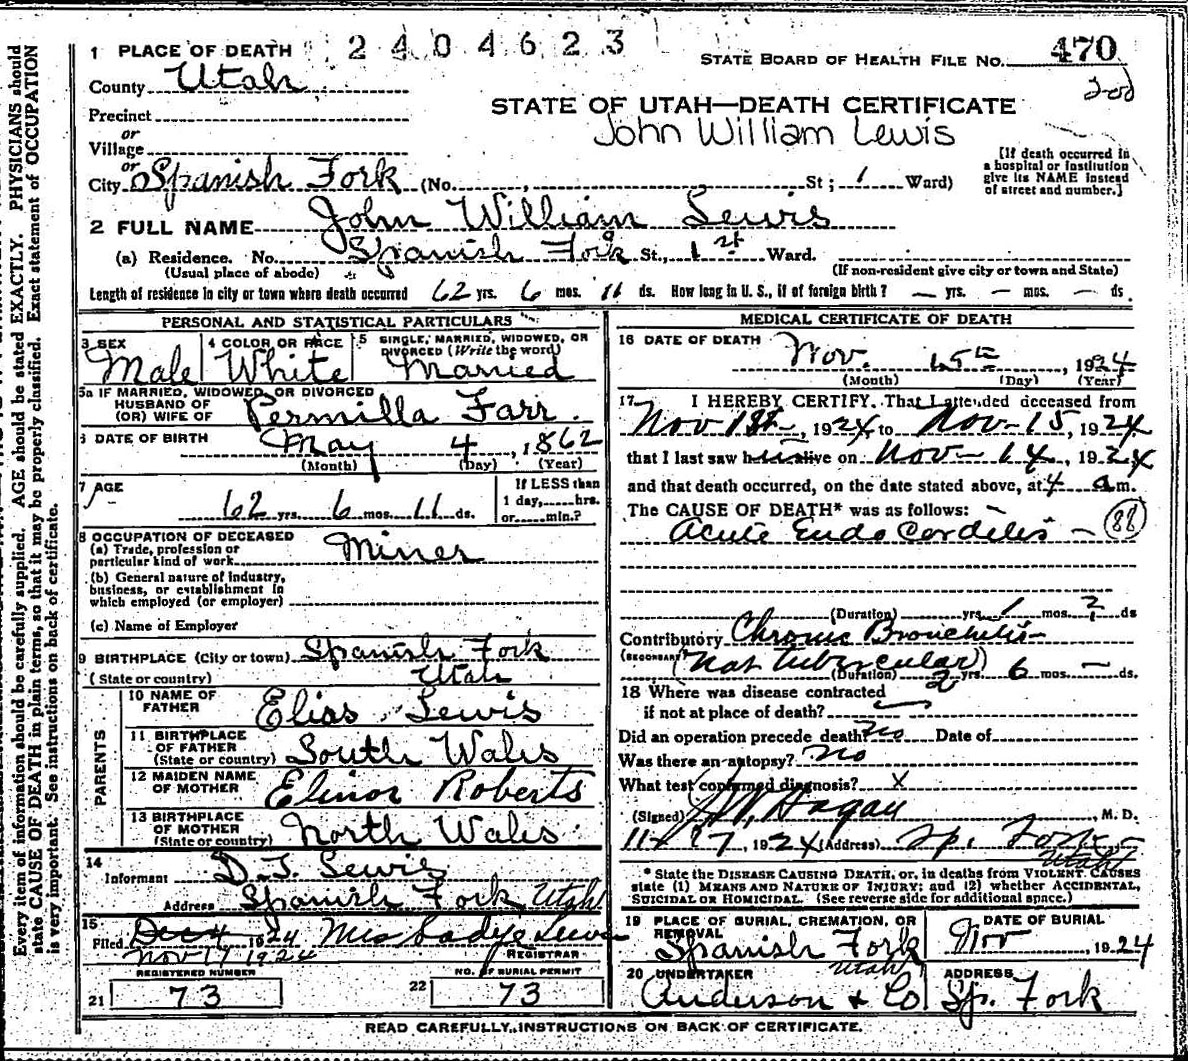 Every item of information should be carefully supplied. AGE should be stated EXACTLY. PHYSICIANS should
state CAUSE OF DEATH in plain terms, so that it may be properly classified. Exact statement of OCCUPATION
is very important. See instructions on back of certificate.
2404623
1 PLACE OF DEATH
STATE BOARD OF HEALTH FILE NO. 470
County Utah
STATE OF UTAH—DEATH CERTIFICATE
Precinct
John William Lewis
or
Village
or
City Spanish Fork (No. , St; 1 Ward)
[If death occurred in
a hospital or institution
give its NAME instead
of street and number.]
2 FULL NAME John William Lewis
(a) Residence. No. Spanish Fork St., 1st Ward.
(Usual place of abode)
(If non-resident give city or town and State)
Length of residence in city or town where death occurred 62 yrs. 6 mos. 11 ds. How long in U. S., if of foreign birth? — yrs. — mos. — ds.
PERSONAL AND STATISTICAL PARTICULARS
3 SEX Male
4 COLOR OR RACE White
5 SINGLE, MARRIED, WIDOWED, OR
DIVORCED (Write the word)
Married
5a IF MARRIED, WIDOWED, OR DIVORCED
HUSBAND OF
(OR) WIFE OF Permilla Farr.
6 DATE OF BIRTH May 4, 1862
(Month) (Day) (Year)
7 AGE
62 yrs. 6 mos. 11 ds.
If LESS than
1 day, hrs.
or min.?
8 OCCUPATION OF DECEASED
(a) Trade, profession or
particular kind of work Miner
(b) General nature of industry,
business, or establishment in
which employed (or employer)
(c) Name of Employer
9 BIRTHPLACE (City or town) Spanish Fork
(State or country) Utah
PARENTS
10 NAME OF
FATHER Elias Lewis
11 BIRTHPLACE
OF FATHER
(State or country) South Wales
12 MAIDEN NAME
OF MOTHER Elinor Roberts
13 BIRTHPLACE
OF MOTHER
(State or country) North Wales
14
Informant D. T. Lewis
Address Spanish Fork Utah
15
Filed Dec 4 1924 Mrs Sadye Lewis
Nov 17 1924 REGISTRAR
REGISTERED NUMBER
21 73
NO. OF BURIAL PERMIT
22 73
MEDICAL CERTIFICATE OF DEATH
16 DATE OF DEATH
Nov. 15th, 1924
(Month) (Day) (Year)
17 I HEREBY CERTIFY, That I attended deceased from
Nov 1st, 1924, to Nov-15, 1924
that I last saw him alive on Nov-14, 1924
and that death occurred, on the date stated above, at 4 a m.
The CAUSE OF DEATH* was as follows:
Acute Endo Cordites — (88)
(Duration) yrs. 1 mos. ? ds
Contributory Chronic Bronchitis
(SECONDARY) (Not Tubercular)
(Duration) 2 yrs. 6 mos. — ds.
18 Where was disease contracted
if not at place of death?
Did an operation precede death? No Date of
Was there an autopsy? No
What test confirmed diagnosis? x
(Signed) Hagan, M. D.
11-17, 1924 (Address) Sp. Fork
Utah
* State the DISEASE CAUSING DEATH, or, in deaths from VIOLENT CAUSES
state (1) MEANS AND NATURE OF INJURY; and (2) whether ACCIDENTAL,
SUICIDAL OR HOMICIDAL. (See reverse side for additional space.)
19 PLACE OF BURIAL, CREMATION, OR
REMOVAL
Spanish Fork
Utah
DATE OF BURIAL
Nov, 1924
20 UNDERTAKER
Anderson & Co
ADDRESS
Sp. Fork
READ CAREFULLY INSTRUCTIONS ON BACK OF CERTIFICATE.